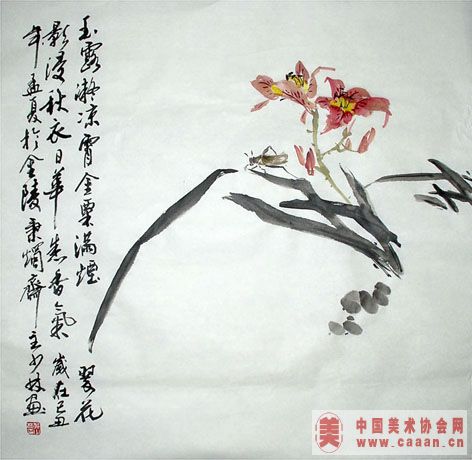 玉露凝凉霄金粟满煙翠花
影浸秋衣日華香氣歲在己丑
年孟夏於金陵秉燭齋主少畫
中国美术协会网
www.caaan.cn
美